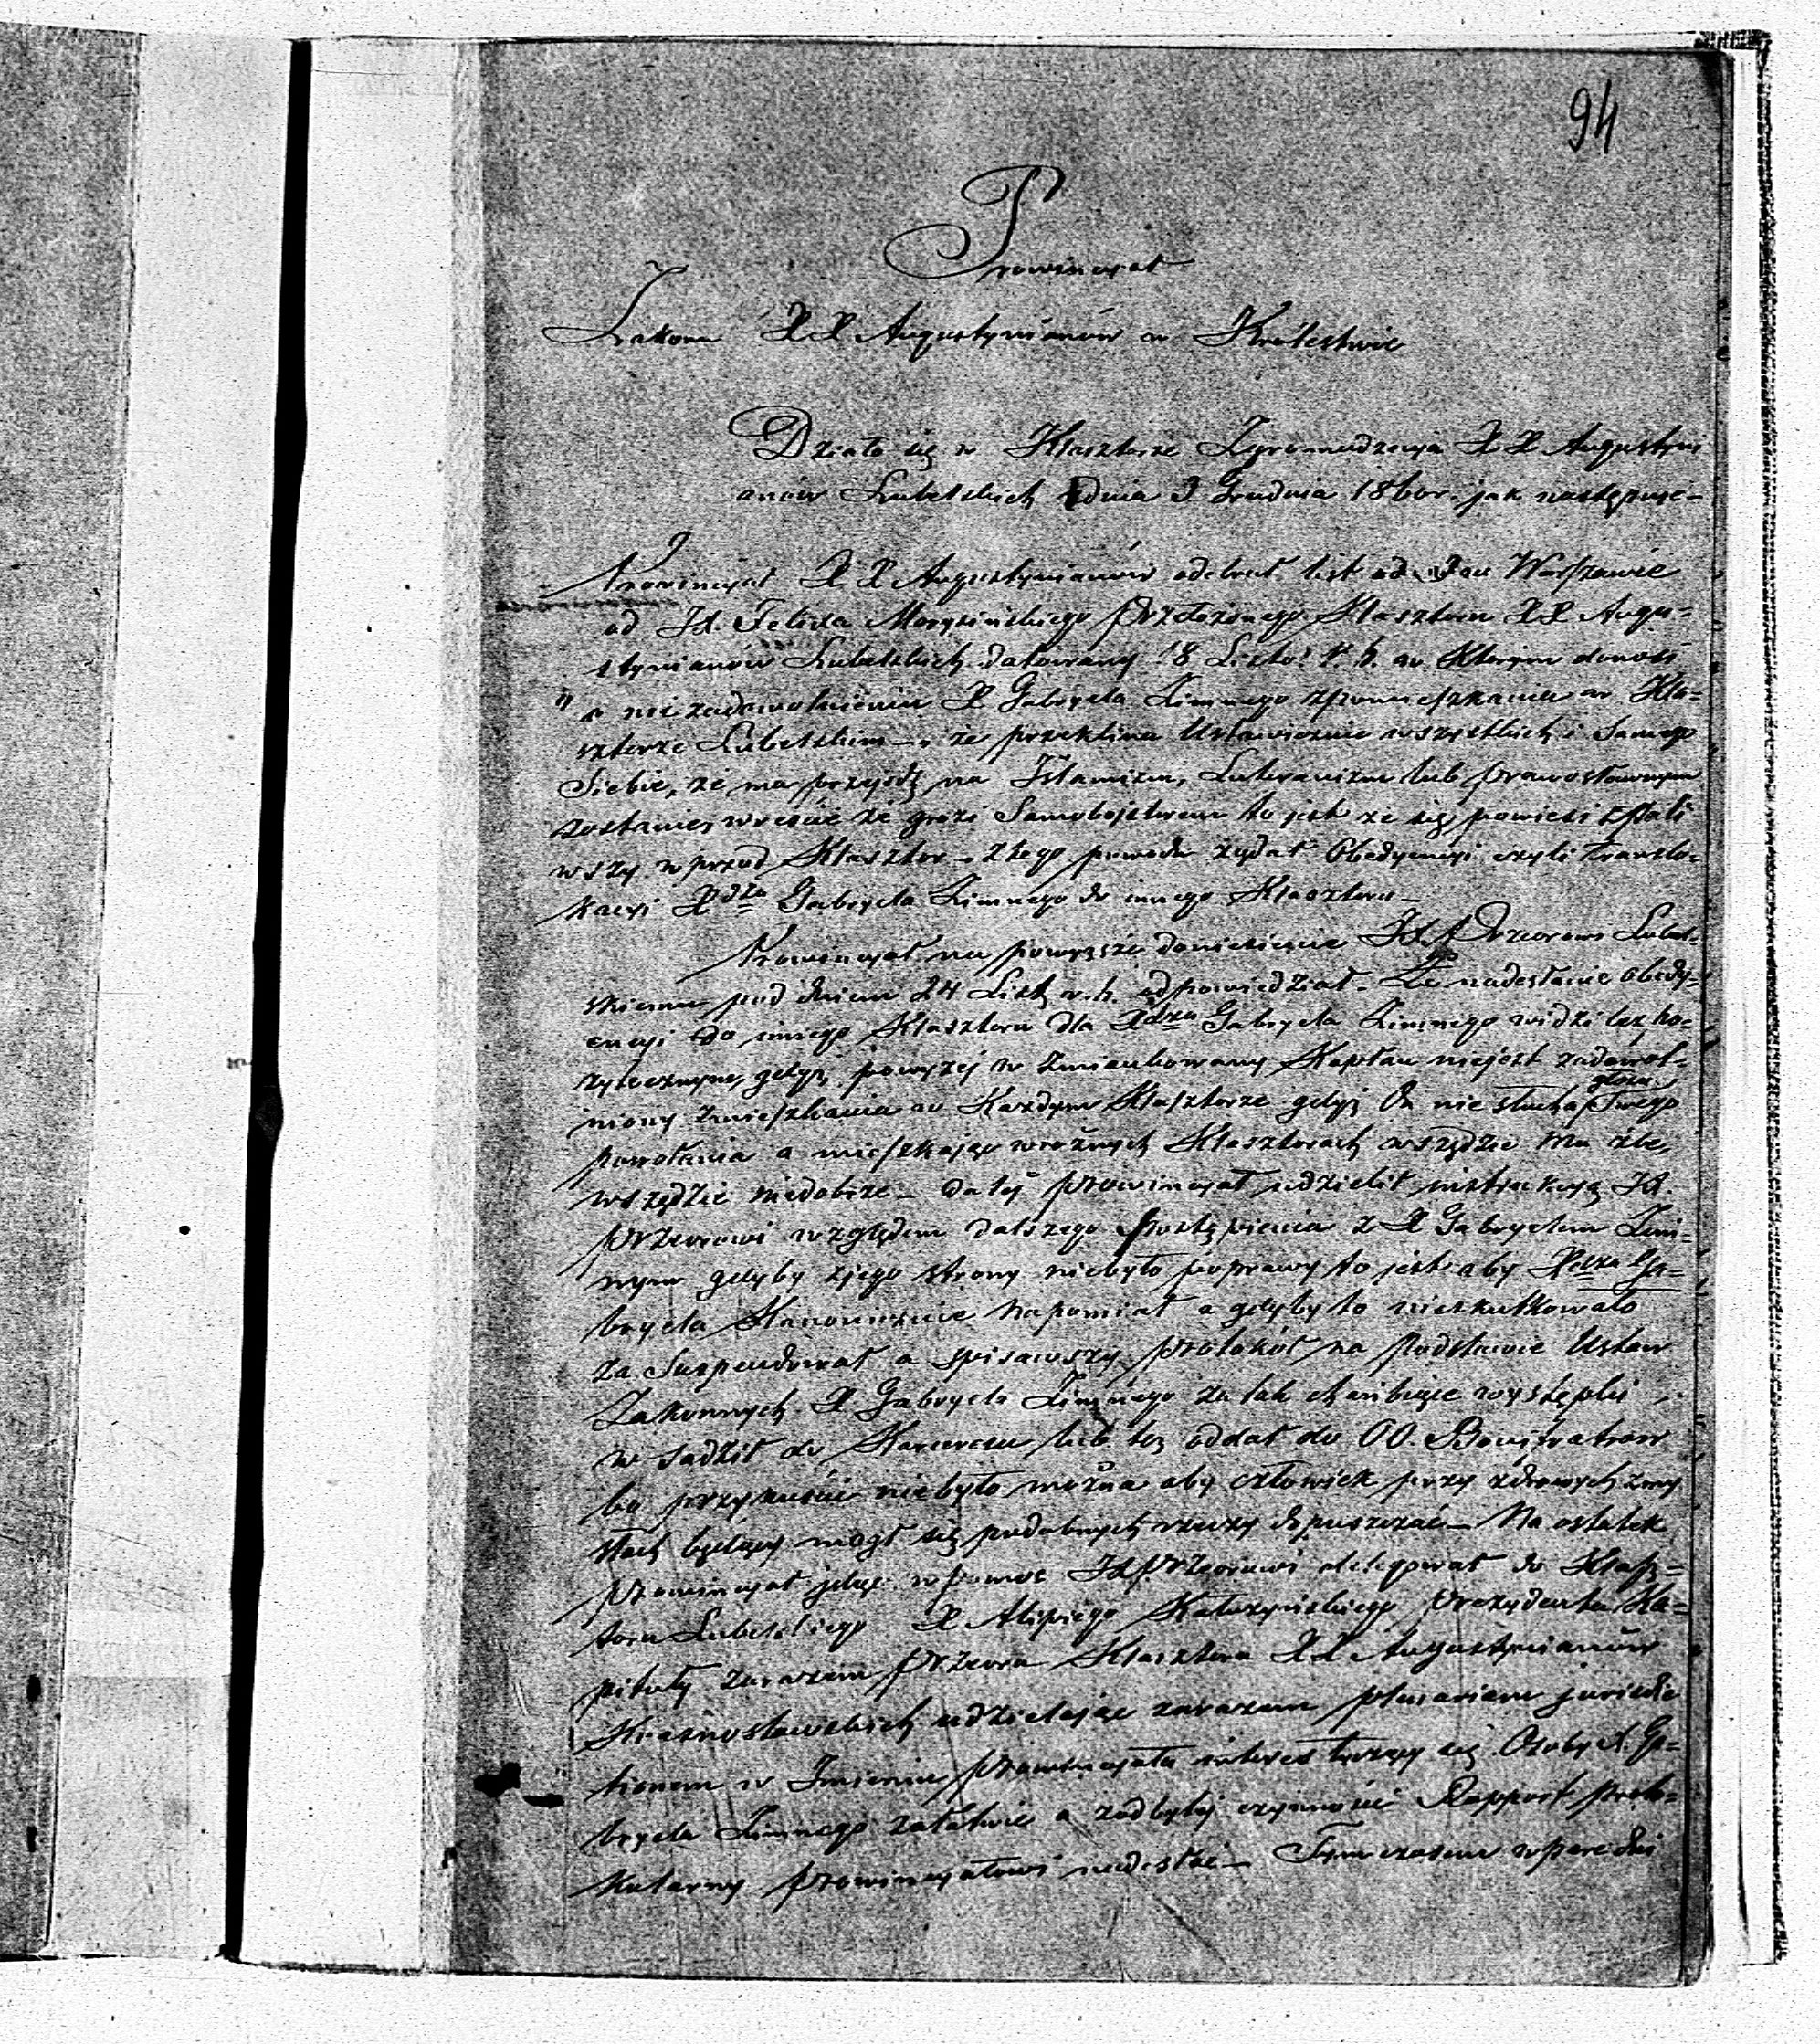 94
Prowincyał
Zakonu XX Augustynianów w Królestwie
Działo się w Klasztorze Zgromadzenia XX Augustyni
anów Lubelskich dnia 3 Grudnia 1860r. jak następuje –
Prowincyał XX Augustynianów odebrał list w Warszawie
od JX. Felixa Morysińskiego Przełożonego Klasztoru XX Augu=
stynianów Lubelskich datowany 18 Listo: r. b. w którym donosi
o nie zadowolnieniu X Gabryela Zimnego z pomieszkania w Kla=
sztorze Lubelskim –, że przeklina Ustawicznie wszystkich i Samego
Siebie, że ma przejść na Islamizm, Luteranizm lub prawosławnym
zostanie, wreście że grozi Samobojstwem to jest że się powiesi spali
wszy w przód Klasztor – z tego powodu żądał Obedyencyi czyli translo=
kacyi Xdza Gabryela Zimnego do innego Klasztoru –
Prowincyał na powyższe doniesienie JX. Przeorowi Lubel=
skiemu pod dniem 24 Listo r. b. odpowiedział – Że nadesłanie Obedy=
encyi do innego Klasztoru dla Xdza Gabryela Zimnego widzi bezpo=
żytecznym, gdyż powyżej w zmiankowany Kapłan niejest zadowol=
niony zmieszkania w Kazdym Klasztorze gdyż On nie słucha głosu Swego
powołania a mieszkając w rożnych Klasztorach wszędzie mu źle,
wszędzie niedobrze – dalej prowincyał udzielił instrukcyą JX.
przeorowi względem dalszego Postąpienia z X Gabryelem Zim=
nym gdyby zjego strony niebyło poprawy to jest aby Xdza Ga=
bryela Kanonicznie napomniał a gdyby to nieskutkowało
za Suspendował a spisawszy protokół na Podstawie Ustaw
Zakonnych X Gabryela Zimnego za tak chanbiące występki
w sadził do Karceresu lub też oddał do OO. Bonifratrow
bo przypuścić niebyło można aby człowiek przy zdrowych zmy
słach będący mogł się podobnych rzeczy dopuszczać – Na ostatek
prowincyał jdąc w pomoc JX przeorowi delegował do Klasz=
toru Lubelskiego X Alipiego Kałuzyńskiego prezydenta Ka=
pituły zarazem przeora Klasztoru XX Augustynianów
Krasnostawskich udzielając zarazem plenariam jurisdic
tionem w Imieniu prowincyała interes tyczący się Osoby X. Ga=
bryela Zimnego załatwić a zodbytej czynności Rapport proto=
kularny prowincyałowi nadesłać – Tymczasem w pare dni